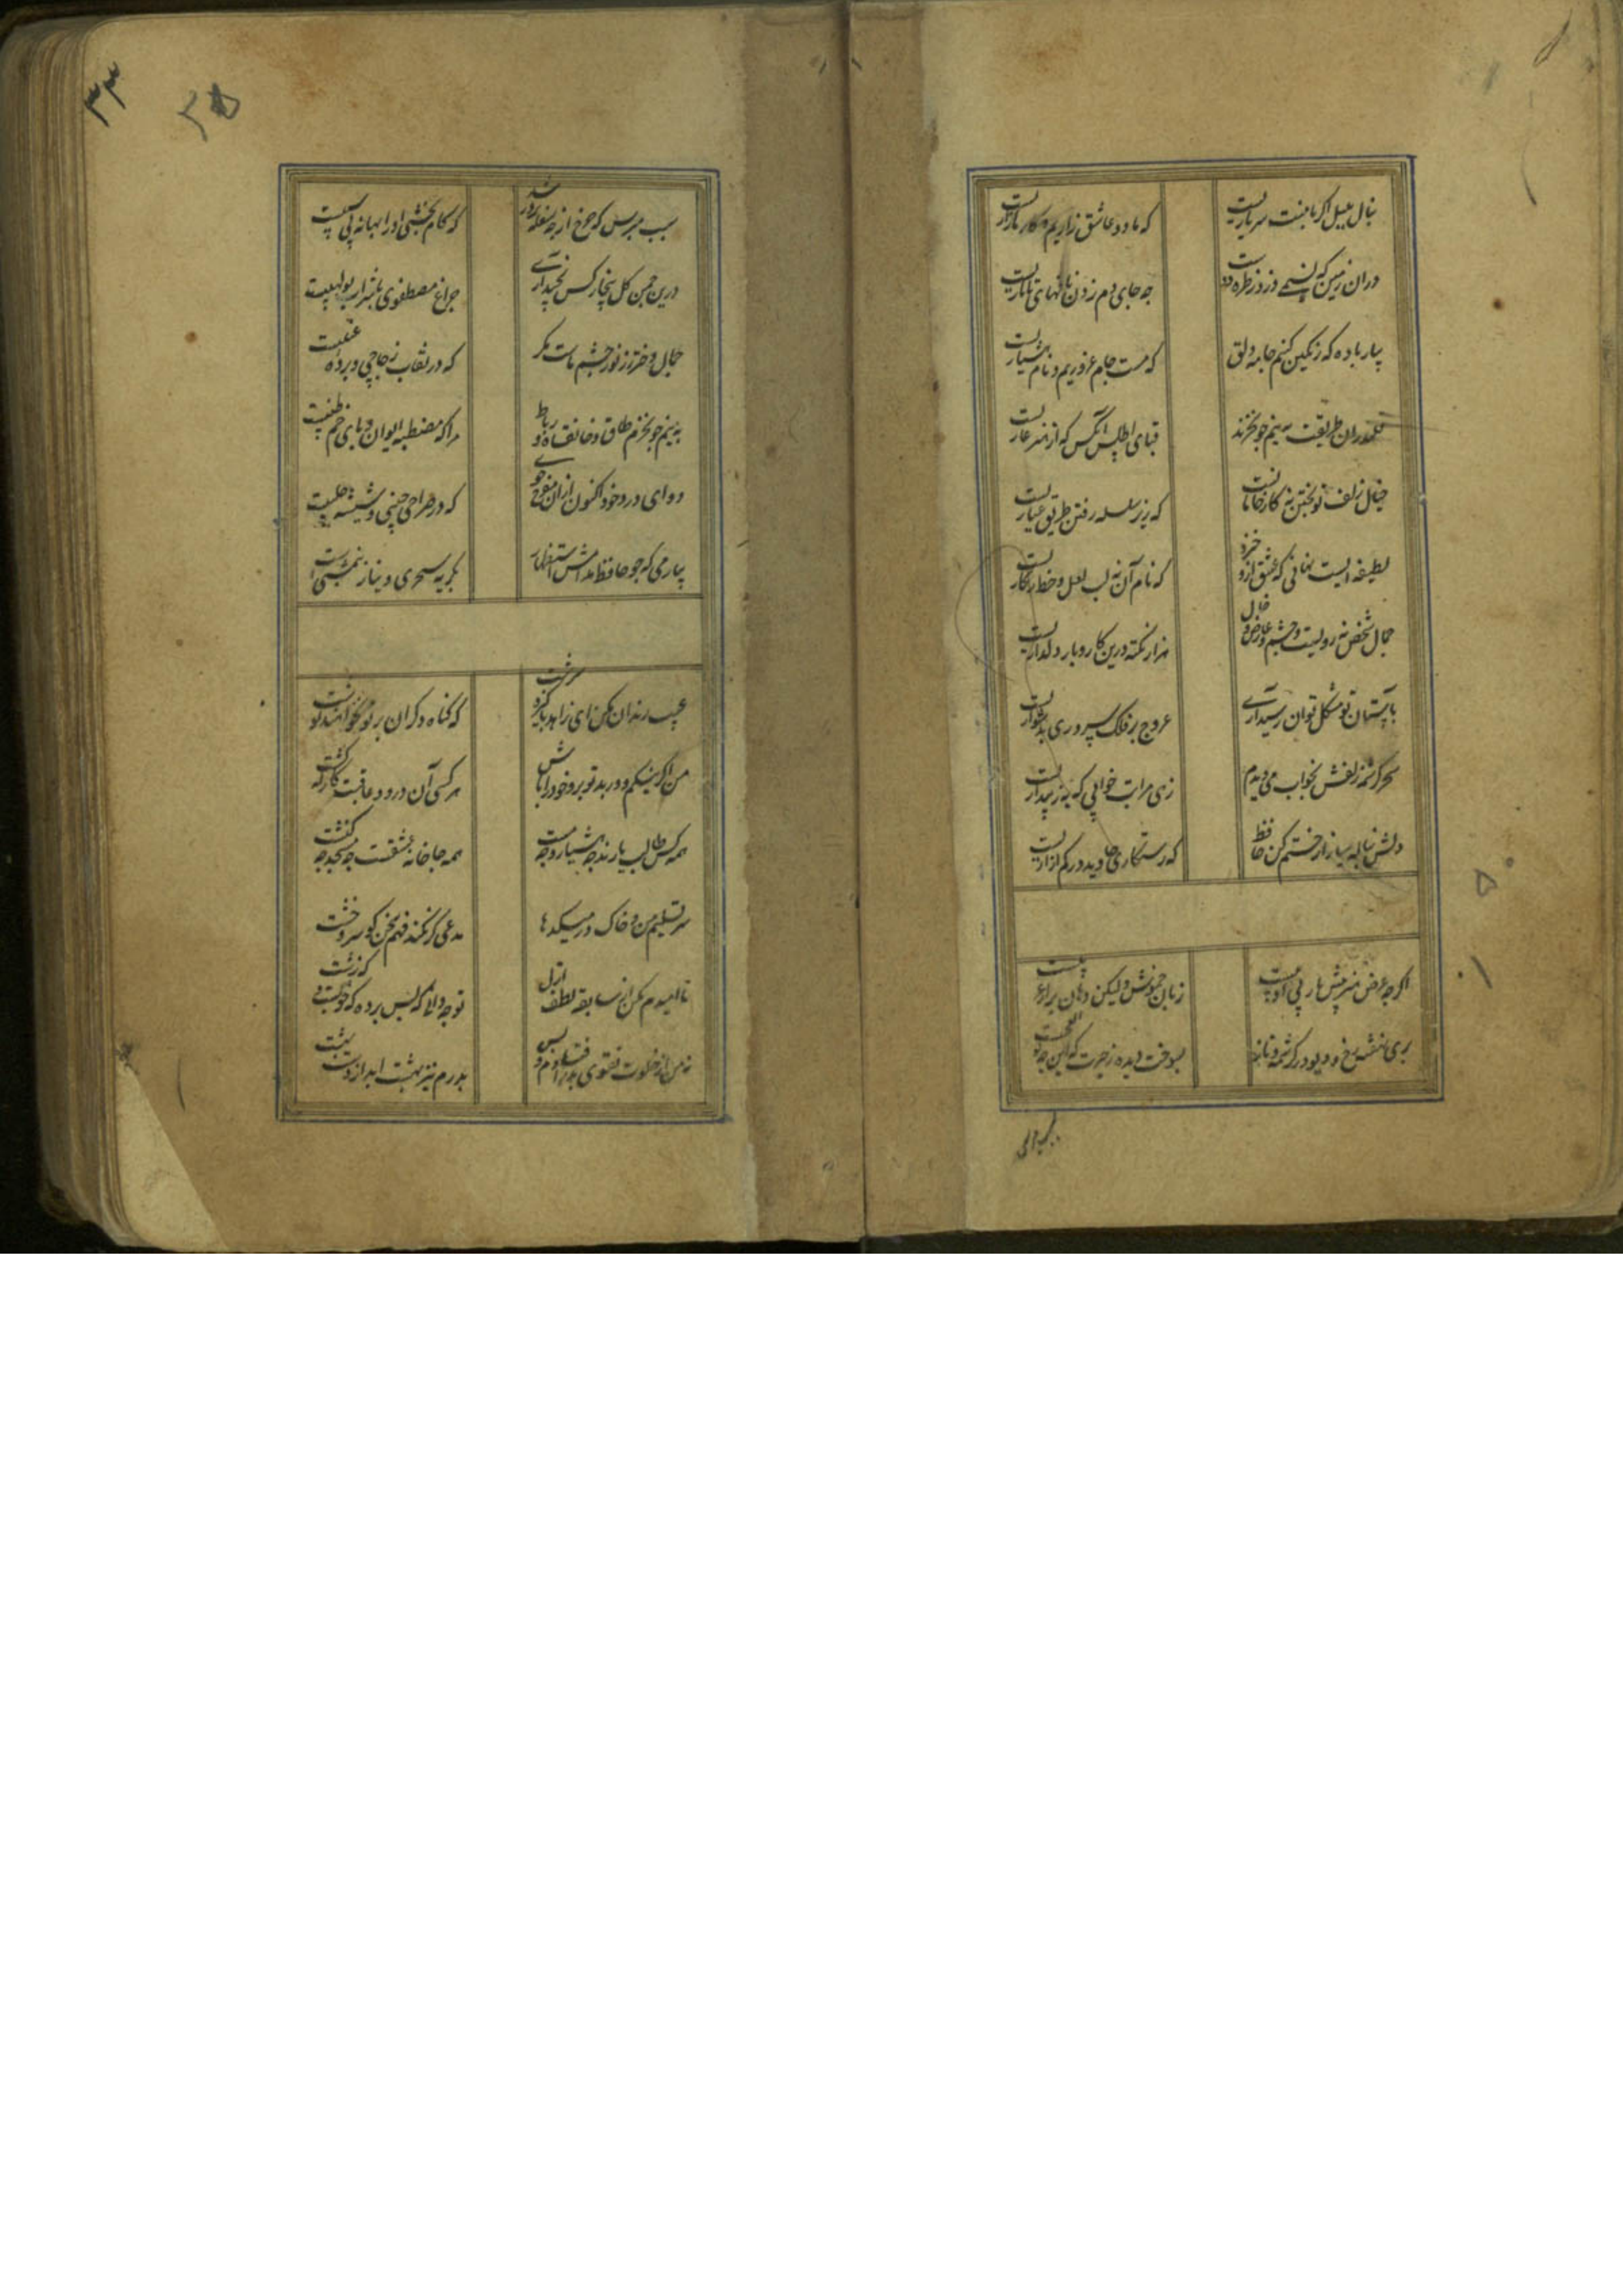 بنال بلبل اگر با منت سر یاریست
که ما دو عاشق زاریم و کار ما زاریست
در آن زمین که نسیمی وزد ز طره دوست
چه جای دم زدن نافهای تاتاریست
بیار باده که رنگین کنیم جامه دلق
که مست جام غروریم و نام هشیاریست
قلندران طریقت به نیم جو نخرند
قبای اطلس آنکس که از هنر عاریست
خیال زلف تو پختن نه کار خامانست
که زیر سلسله رفتن طریق عیاریست
لطیفه ایست نهانی که عشق ازو خیزد
که نام آن نه لب لعل و خط زنکاریست
جمال شخص نه رویست و چشم و عارض و خال
هزار نکته درین کار و بار دلداریست
بآستان تو مشکل توان رسید آری
عروج بر فلک سروری بدشواریست
سحر کرشمه زلفش بخواب می دیدم
زهی مراتب خوابی که به ز بیداریست
دلش بناله میازار ختم کن حافظ
که رستکاری جاوید در کم آزاریست
اگرچه عرض هنر پیش یار بی ادبیست
زبان خموش ولیکن دهان پر از عربیست
پری نهفته رخ و دیو در کرشمه و ناز
بسوخت دیده ز حیرت که این چه بوالعجبیست
۳۳
سبب مپرس که چرخ از چه سفله پرور شد
که کام بخشی او را بهانه بی سببیست
درین چمن گل بیخار کس نچید آری
چراغ مصطفوی با شرار بولهبیست
جمال دختر رز نور چشم ماست مگر
که در نقاب زجاجی و پرده عنبیست
به نیم جو نخرم طاق و خانقاه و رباط
مرا که مصطبه ایوان و پای خم طنبیست
دوای درد خود اکنون از آن مفرح جوی
که در صراحی چینی و شیشه حلبیست
بیار می که چو حافظ مدامش استظهار
بگریه سحری و نیاز نیمشبیست
عیب رندان مکن ای زاهد پاکیزه سرشت
که گناه دگران بر تو نخواهند نوشت
من اگر نیکم و گر بد تو برو خود را باش
هر کسی آن درود عاقبت کار که کشت
همه کس طالب یارند چه هشیار و چه مست
همه جا خانه عشقست چه مسجد چه کنشت
سر تسلیم من و خاک در میکدها
مدعی گر نکند فهم سخن گو سر و خشت
ناامیدم مکن از سابقه لطف ازل
تو چه دانی که پس پرده که خوبست و که زشت
نه من از خلوت تقوی بدر افتادم و بس
پدرم نیز بهشت ابد از دست بهشت